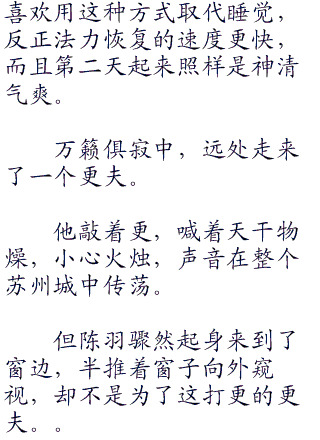 喜欢用这种方式取代睡觉，
反正法力恢复的速度更快，
而且第二天起来照样是神清
气爽。
万籁俱寂中，远处走来
了一个更夫。
他敲着更，喊着天干物
燥，小心火烛，声音在整个
苏州城中传荡。
但陈羽骤然起身来到了
窗边，半推着窗子向外窥
视，却不是为了这打更的更
夫。。